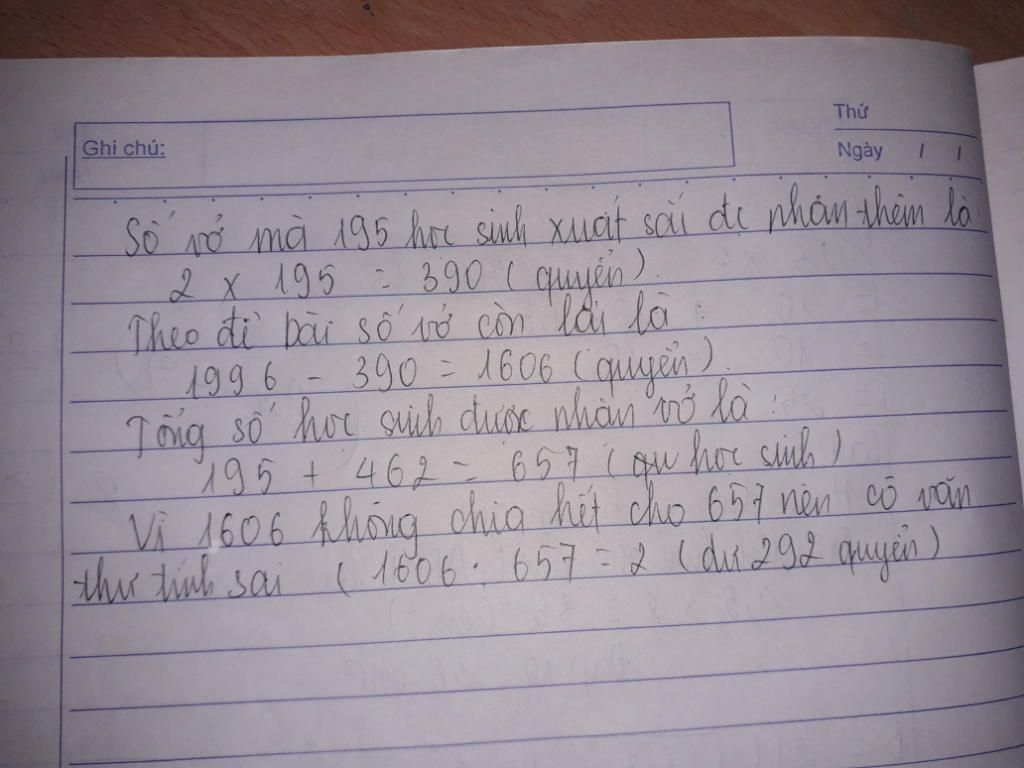 Thứ
Ghi chú:
Ngày / /
Số vở mà 195 học sinh xuất sắc đc nhận thêm là
2 x 195 = 390 (quyển).
Theo đề bài số vở còn lại là :
1996 - 390 = 1606 (quyển).
Tổng số học sinh được nhận vở là :
195 + 462 = 657 (học sinh)
Vì 1606 không chia hết cho 657 nên cô văn
thư tính sai ( 1606 : 657 = 2 (dư 292 quyển)